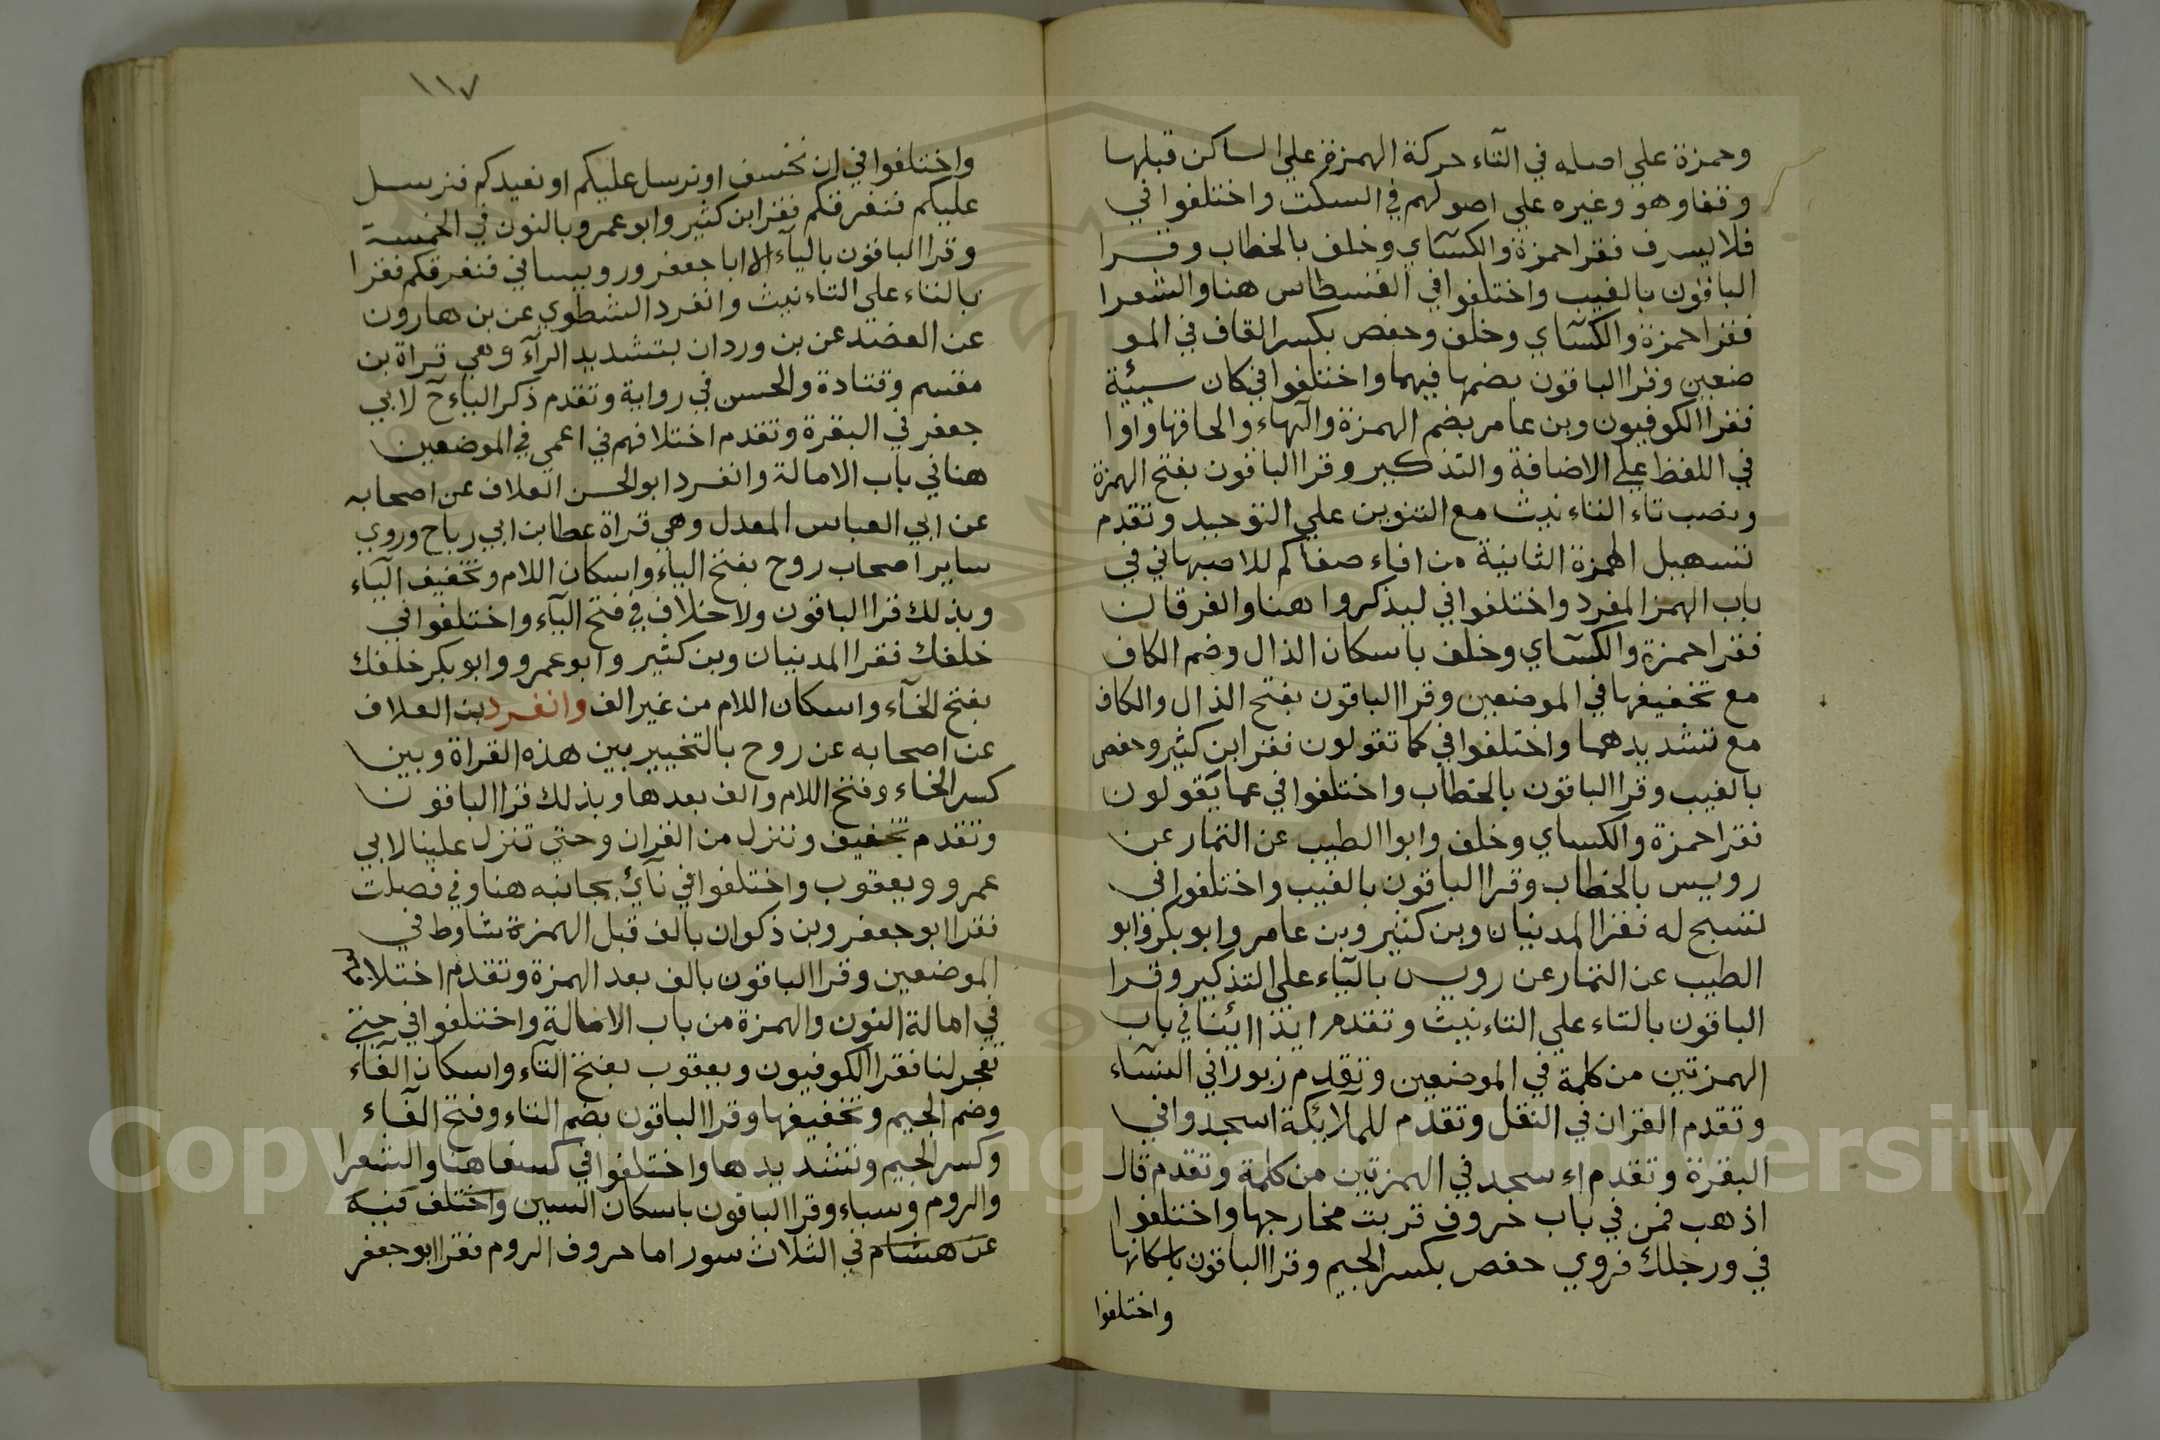 وحمزة علي اصله في التاء حركة الهمزة علي الساكن قبلها
وقفا وهو وغيره علي اصولهم في السكت واختلفوا في
فلا يسرف فقرا حمزة والكسآي وخلف بالخطاب وقرا
الباقون بالغيب واختلفوا في القسطاس هنا والشعرا
فقرا حمزة والكسآي وخلف وحفص بكسر القاف في المو
ضعين وقرا الباقون بضمها فيهما واختلفوا في كان سيئة
فقرا الكوفيون وبن عامر بضم الهمزة والهاء والحاقها واوا
في اللفظ علي الاضافة والتذكير وقرا الباقون بفتح الهمزة
ونصب تاء التاءنيث مع التنوين علي التوحيد وتقدم
تسهيل الهمزة الثانية من افاء صفاكم للاصبهاني في
باب الهمز المفرد واختلفوا في ليذكروا هنا والفرقان
فقرا حمزة والكسآي وخلف باسكان الذال وضم الكاف
مع تخفيفها في الموضعين وقرا الباقون بفتح الذال والكاف
مع تشديدهما واختلفوا في كما تقولون فقرا ابن كثير وحفص
بالغيب وقرا الباقون بالخطاب واختلفوا في عما يقولون
فقرا حمزة والكساي وخلف وابوا الطيب عن التمار عن
رويس بالخطاب وقرا الباقون بالغيب واختلفوا في
تسبح له فقرا المدنيان وبن كثير وبن عامر وابو بكر وابو
الطيب عن التمار عن رويس بالياء علي التذكير وقرا
الباقون بالتاء علي التاءنيث وتقدم ائذا ائنا في باب
الهمزتين من كلمة في الموضعين وتقدم زبورا في النسآء
وتقدم القران في النقل وتقدم للملائكة اسجدوا في
البقرة وتقدم اء سجد في الهمزتين من كلمة وتقدم قال
اذهب فمن في باب حروف قربت مخارجها واختلفوا
في ورجلك فروي حفص بكسر الجيم وقرا الباقون باسكانها
واختلفوا
١١٧
واختلفوا في ان نخسف او نرسل عليكم او نعيدكم فنرسل
عليكم فنغرقكم فقرا ابن كثير وابو عمرو بالنون في الخمسة
وقرا الباقون بالياء الا ابا جعفر ورويسا في فنغرقكم فقرا
بالتاء علي التاءنيث وانفرد الشطوي عن بن هارون
عن الفضل عن بن وردان بتشديد الرآء وهي قراة بن
مقسم وقتادة والحسن في رواية وتقدم ذكر الرياح لابي
جعفر في البقرة وتقدم اختلافهم في اعمي في الموضعين
هنا في باب الامالة وانفرد ابو الحسن العلاف عن اصحابه
عن ابي العباس المعدل وهي قراة عطا بن ابي رباح وروي
ساير اصحاب روح بفتح الباء واسكان اللام وتخفيف الياء
وبذلك قرا الباقون ولا خلاف في فتح الياء واختلفوا في
خلفك فقرا المدنيان وبن كثير وابو عمرو وابو بكر خلفك
بفتح الخآء واسكان اللام من غير الف وانفرد بن العلاف
عن اصحابه عن روح بالتخيير بين هذه القراة وبين
كسر الخاء وفتح اللام والف بعدها وبذلك قرا الباقون
وتقدم تخفيف وننزل من القران وحتي تنزل علينا لابي
عمرو ويعقوب واختلفوا في نآئ بجانبه هنا وفي فصلت
فقرا ابو جعفر وبن ذكوان بالف قبل الهمزة شاوط في
الموضعين وقرا الباقون بالف بعد الهمزة وتقدم اختلافهم
في امالة النون والهمزة من باب الامالة واختلفوا في حتي
تفجر لنا فقرا الكوفيون ويعقوب بفتح التآء واسكان الفآء
وضم الجيم وتخفيفها وقرا الباقون بضم التاء وفتح الفآء
وكسر الجيم وتشديدها واختلفوا في كسفا هنا والشعرا
والروم وسباء وقرا الباقون باسكان السين واختلف فيه
عن هشام في الثلاث سور اما حروف الروم فقرا ابو جعفر
Copyright © King Saud University